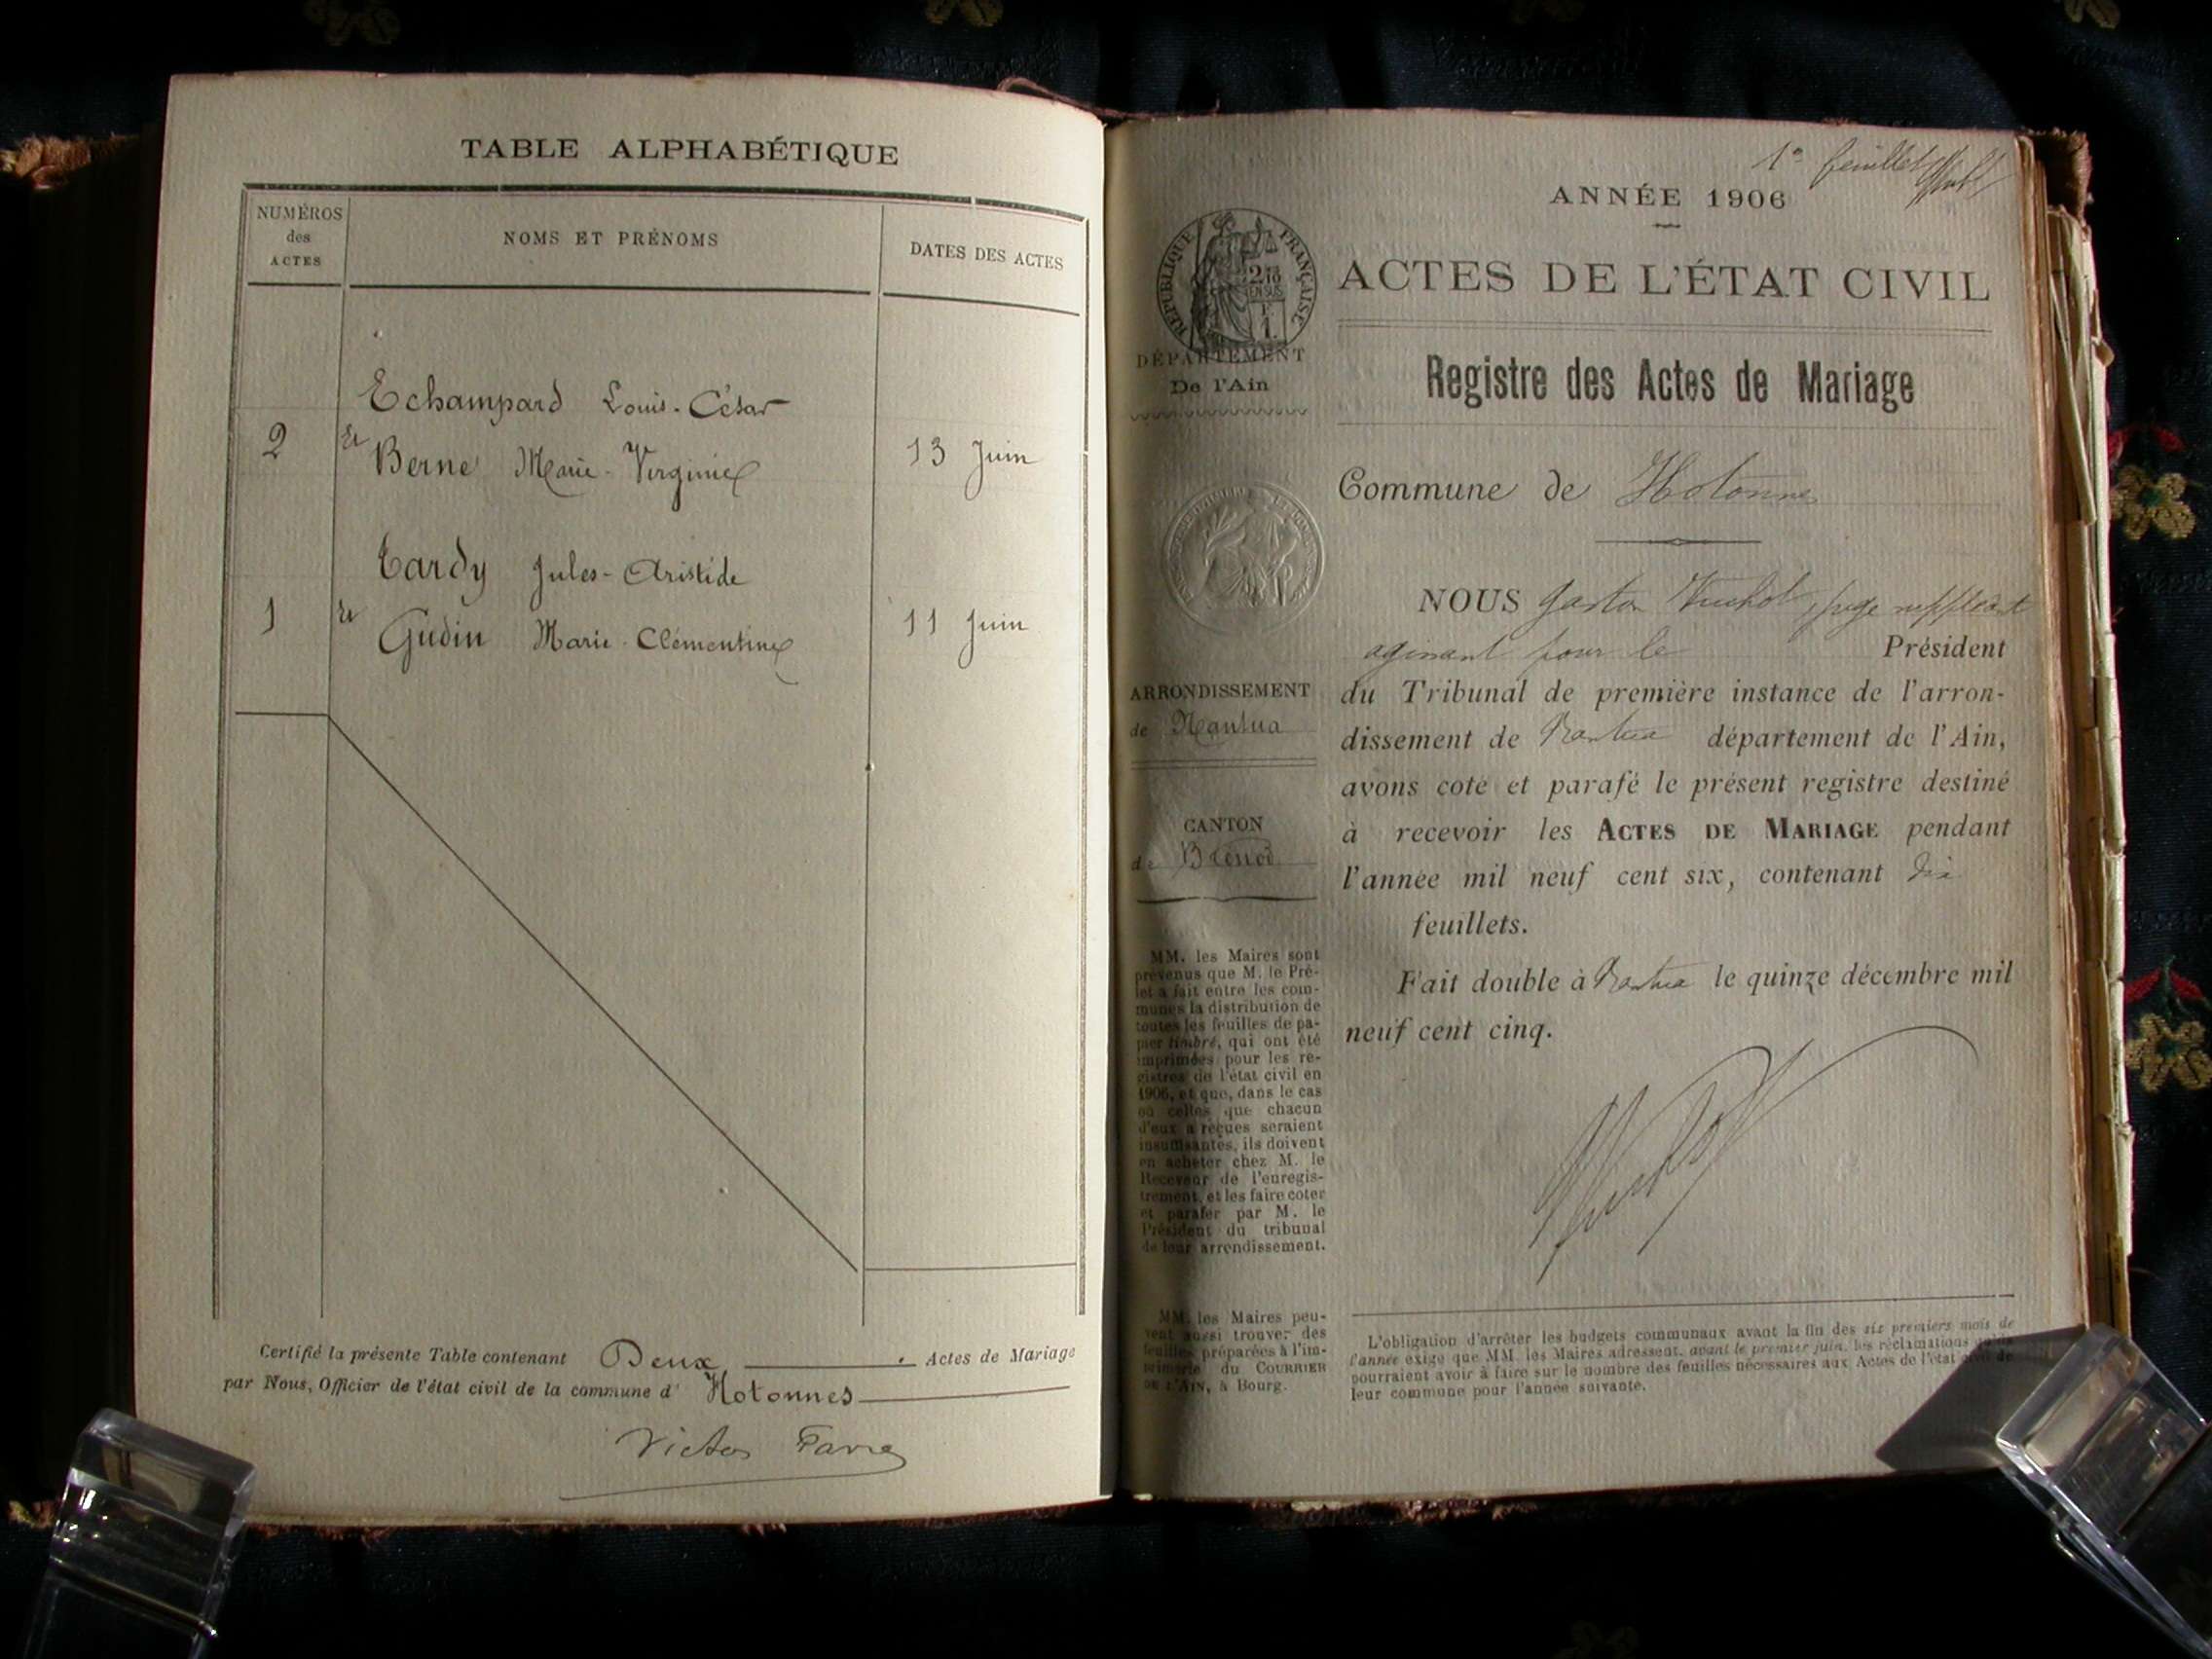 TABLE ALPHABÉTIQUE
NUMÉROS
des
ACTES
NOMS ET PRÉNOMS
DATES DES ACTES
Echampard Louis-César
2 et Berne Marie-Virginie 13 Juin
Tardy Jules-Aristide
1 et Gudin Marie-Clémentine 11 Juin
Certifié la présente Table contenant Deux Actes de Mariage
par Nous, Officier de l'état civil de la commune d' Hotonnes
Victor Favre
1er feuillet
ANNÉE 1906
RÉPUBLIQUE FRANÇAISE
2/10
EN SUS
1
ACTES DE L'ÉTAT CIVIL
DÉPARTEMENT
De l'Ain
Registre des Actes de Mariage
Commune de Hotonnes
NOUS Gaston juge suppléant
agissant pour le Président
ARRONDISSEMENT
de Nantua
du Tribunal de première instance de l'arron-
dissement de Nantua département de l'Ain,
avons coté et parafé le présent registre destiné
à recevoir les ACTES DE MARIAGE pendant
l'année mil neuf cent six, contenant dix
feuillets.
CANTON
de Brénod
Fait double à Nantua le quinze décembre mil
neuf cent cinq.
MM. les Maires sont
prévenus que M. le Pré-
fet a fait entre les com-
munes la distribution de
toutes les feuilles de pa-
pier timbré, qui ont été
imprimées pour les re-
gistres de l'état civil en
1906, et que, dans le cas
où celles que chacun
d'eux a reçues seraient
insuffisantes, ils doivent
en acheter chez M. le
Receveur de l'enregis-
trement, et les faire coter
et parafer par M. le
Président du tribunal
de leur arrondissement.
MM. les Maires peu-
vent aussi trouver des
feuilles préparées à l'im-
primerie du COURRIER
DE L'AIN, à Bourg.
L'obligation d'arrêter les budgets communaux avant la fin des six premiers mois de
l'année exige que MM. les Maires adressent, avant le premier juin, les réclamations qu'ils
pourraient avoir à faire sur le nombre des feuilles nécessaires aux Actes de l'état civil de
leur commune pour l'année suivante.